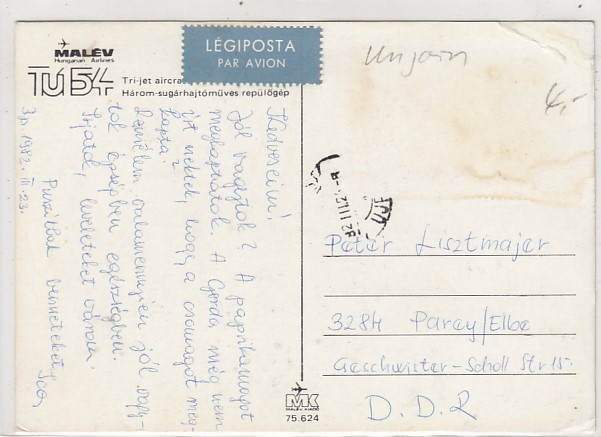 MALÉV
Hungarian Airlines
TU 154
Tri-jet aircra
Három-sugárhajtóműves repülőgép
LÉGIPOSTA
PAR AVION
Ungarn
4,-
Kedveseim!
Jól vagytok? A paprikamagot
megkaptátok. A Gerda még nem
írt nektek, hogy a csomagot meg-
kapta?
Remélem valamennyien jól vagy-
tok épségben egészségben.
Írjatok, leveleteket várom.
Puszillak benneteket
Bp. 1982. III. 23.
Peter Lisztmajer
3284 Parey/Elbe
Geschwister-Scholl Str 15.
D.D.R
MK
MALÉV KIADÓ
75.624